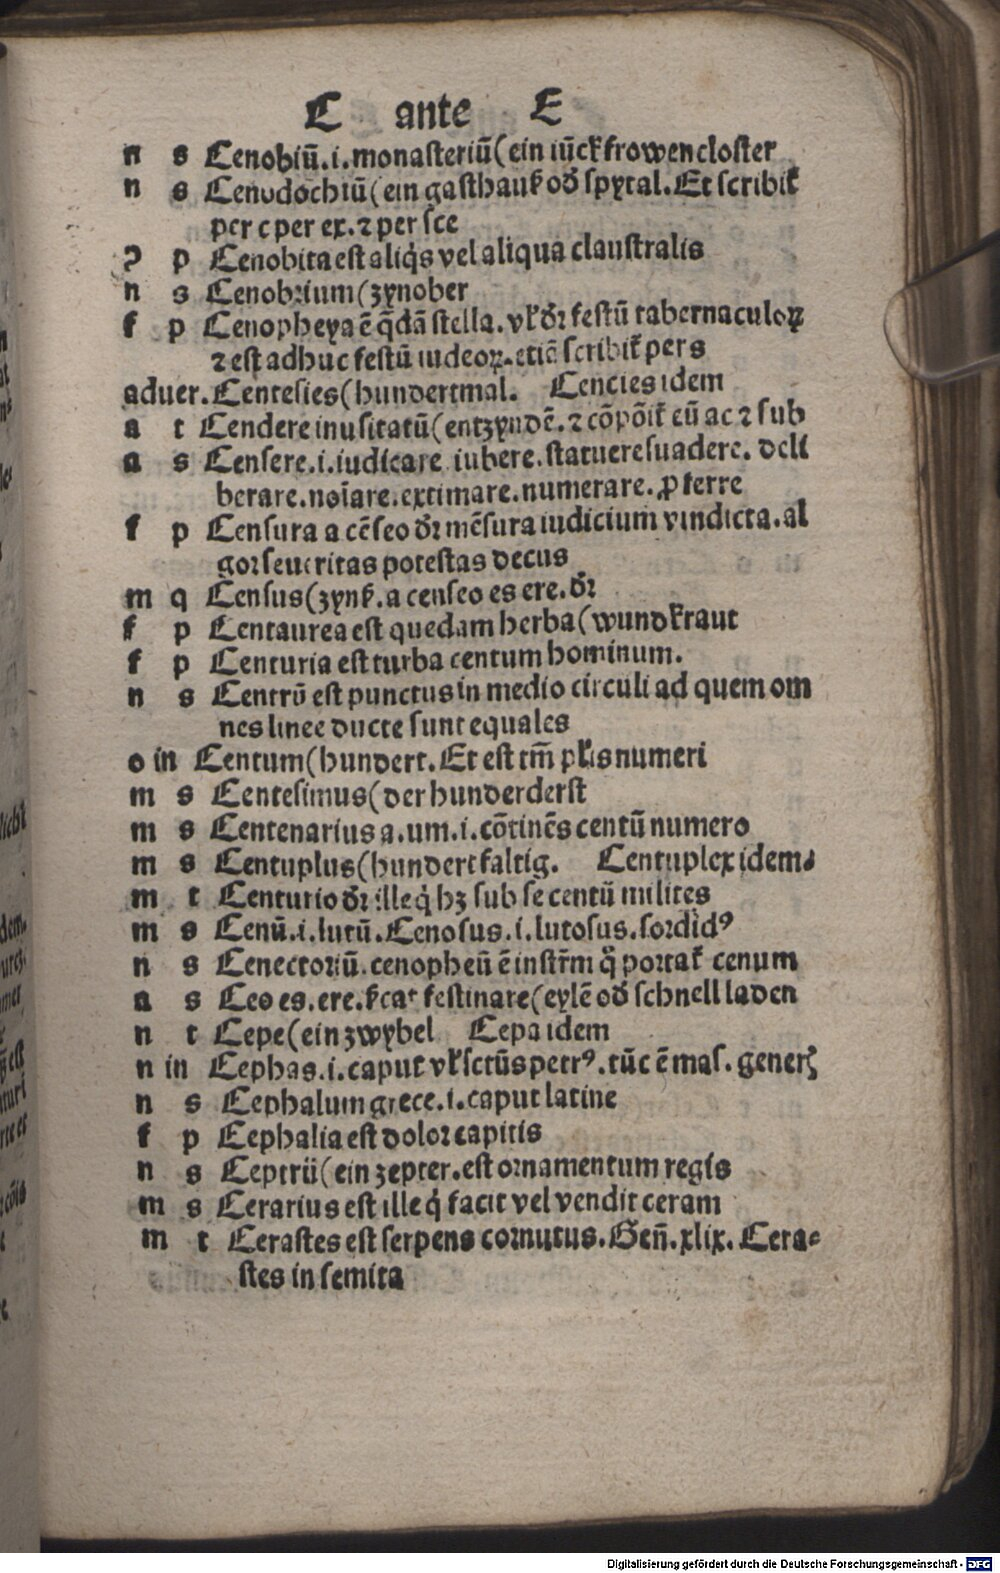 C ante E
n s Cenobiū.i.monasteriū(ein iūckfrowencloster
n s Cenodochiū(ein gasthauß od̄ spytal.Et scribit̄
per c per ex.⁊ per sce
ꝯ p Cenobita est aliq̇s vel aliqua claustralis
n s Cenobrium(zynober
f p Cenopheya ē q̄dā stella.vl̄ dr̄ festū tabernaculoꝝ
⁊ est adhuc festū iudeoꝝ.etiā scribit̄ per s
aduer.Centesies(hundertmal. Cencies idem
a t Cendere inusitatū(entzyndē.⁊ cōpōit̄ cū ac ⁊ sub
a s Censere.i.iudicare iubere.statuere suadere.deli
berare.noīare.extimare.numerare.ꝓferre
f p Censura a cēseo dr̄ mēsura iudicium vindicta.al
gor seueritas potestas decus
m q Census(zynß.a censeo es ere.dr̄
f p Centaurea est quedam herba(wundkraut
f p Centuria est turba centum hominum.
n s Centrū est punctus in medio circuli ad quem om
nes linee ducte sunt equales
o in Centum(hundert.Et est tm̄ pl̄is numeri
m s Centesimus(der hunderderst
m s Centenarius a.um.i.cōtinēs centū numero
m s Centuplus(hundertfaltig. Centuplex idem.
m t Centurio dr̄ ille q̇ hꝫ sub se centū milites
m s Cenū.i.lutū.Cenosus.i.lutosus.sordidꝰ
n s Cenectoriū.cenopheū ē instr̄m q̊ portat̄ cenum
a s Ceo es.ere.ßcaᵗ festinare(eylē od̄ schnell laden
n t Cepe(ein zwybel Cepa idem
n in Cephas.i.caput vl̄ sctūs petrꝰ.tūc ē mas.generꝭ
n s Cephalum grece.i.caput latine
f p Cephalia est dolor capitis
n s Ceptrū(ein zepter.est ornamentum regis
m s Cerarius est ille q̇ facit vel vendit ceram
m t Cerastes est serpens cornutus.Gen̄.xlix.Cera⸗
stes in semita
Digitalisierung gefördert durch die Deutsche Forschungsgemeinschaft - DFG